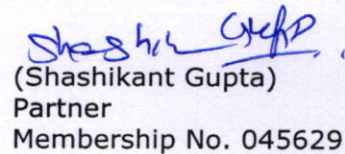 Shashik Gupta
(Shashikant Gupta)
Partner
Membership No. 045629